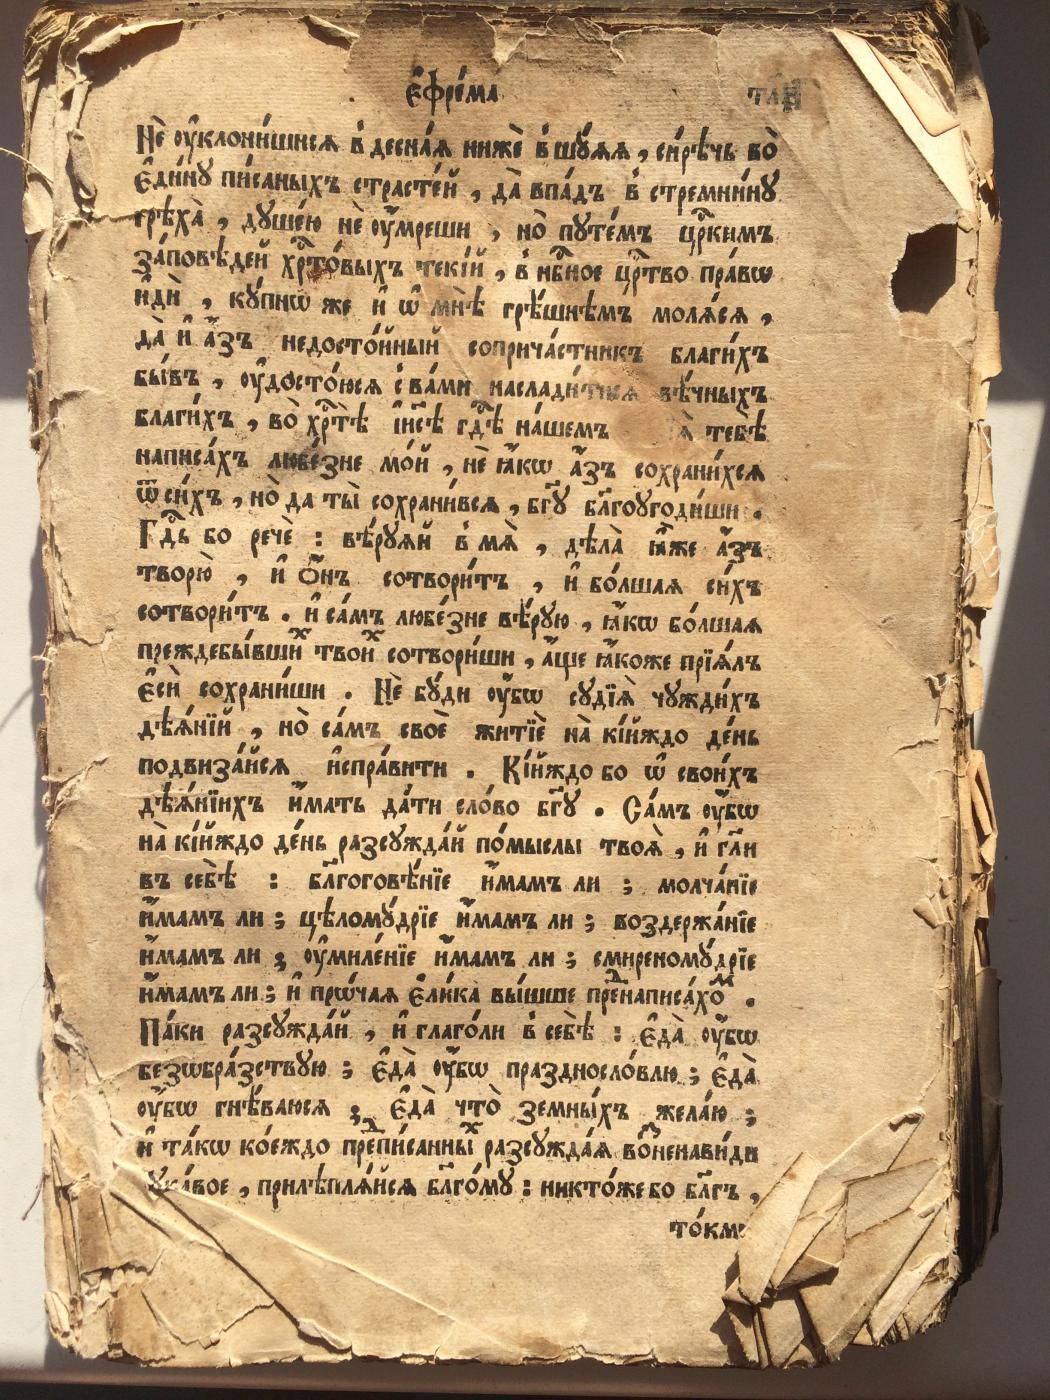 Е҆фре́ма
Нѐ ᲂу҆клони́шисѧ в деснаѧ нижѐ в шꙋ́ѧѧ , си́рѣчь во̀
Е҆ди́нꙋ пи́саныхъ страсте́й , да̀ впа́дъ в стремни́нꙋ
грѣха̀ , дꙋше́ю нѐ ᲂу҆́мреши , но̀ пꙋте́мъ цр҃кимъ
за́повѣдей хр҃то́выхъ теки́й , в нб҃ное цр҃тво пра́вѡ
и҆дѝ , кꙋ́пнѡ же и҆ ѡ҆ мнѣ̀ грѣ́шнѣмъ молѧ́сѧ ,
да̀ и҆ а҆́зъ недосто́йный соприча́стникъ благи́хъ
бы́въ , ᲂу҆досто́юсѧ с ва́ми наслади́тисѧ вѣ́чныхъ
благи́хъ , во̀ хр҃тѣ̀ і҆и҃сѣ гдⷭ҇ѣ на́шемъ тебѣ̀
написа́хъ любе́зне мо́й , не ꙗ҆́кѡ а҆́зъ сохрани́хсѧ
ѿ си́хъ , но̀ да ты̀ сохрани́всѧ , бг҃ꙋ бл҃гоугоди́ши .
Гдⷭ҇ь бо речѐ : вѣ́рꙋѧй в мѧ̀ , дѣ́ла̀ ꙗ҆́же а҆́зъ
творю̀ , и҆ ѻ҆́нъ сотвори́тъ , и҆ бо́лшаѧ си́хъ
сотвори́тъ . и҆ са́мъ любе́зне вѣ́рꙋю , ꙗ҆́кѡ бо́лшаѧ
преждебы́вшиⷯ твоиⷯ сотвори́ши , а҆́ще ꙗ҆́коже прїѧ́лъ
Е҆сѝ сохрани́ши . Нѐ бꙋ́ди ᲂу҆́бѡ сꙋдїѧ̀ чꙋжди́хъ
дѣѧ́нїй , но̀ са́мъ своѐ житїѐ на̀ кі́йждо де́нь
подвиза́йсѧ и҆спра́вити . Кі́йждо бо ѡ҆ свои́хъ
дѣѧ́нїихъ и҆́мать да́ти сло́во бг҃ꙋ . Са́мъ ᲂу҆́бѡ
на̀ кі́йждо де́нь разсꙋжда́й по́мыслы твоѧ̀ , и҆ гл҃и
въ себѣ̀ : бл҃гоговѣ́нїе и҆́мамъ ли ; молча́нїе
и҆́мамъ ли ; цѣломꙋ́дрїе и҆́мамъ ли ; воздержа́нїе
и҆́мамъ ли ; ᲂу҆миле́нїе и҆́мамъ ли ; смиреномꙋ́дрїе
и҆́мамъ ли ; и҆ прѡ́чаѧ е҆ли́ка̀ вы́шше преⷣнаписа́хоⷨ .
Па́ки разсꙋжда́й , и҆ глаго́ли в себѣ̀ : е҆да̀ ᲂу҆́бѡ
безѡбра́зствꙋю ; е҆да̀ ᲂу҆́бѡ праздносло́влю ; е҆да̀
ᲂу҆́бѡ гнѣ́ваюсѧ ; е҆да̀ что̀ земны́хъ жела́ю ;
и҆ та́кѡ ко́еждо преⷣпи́санныⷯ разсꙋжда́ѧ воⷥненави́ди
лꙋка́вое , прилѣплѧ́йсѧ бл҃го́мꙋ : никто́же бо бл҃гъ ,